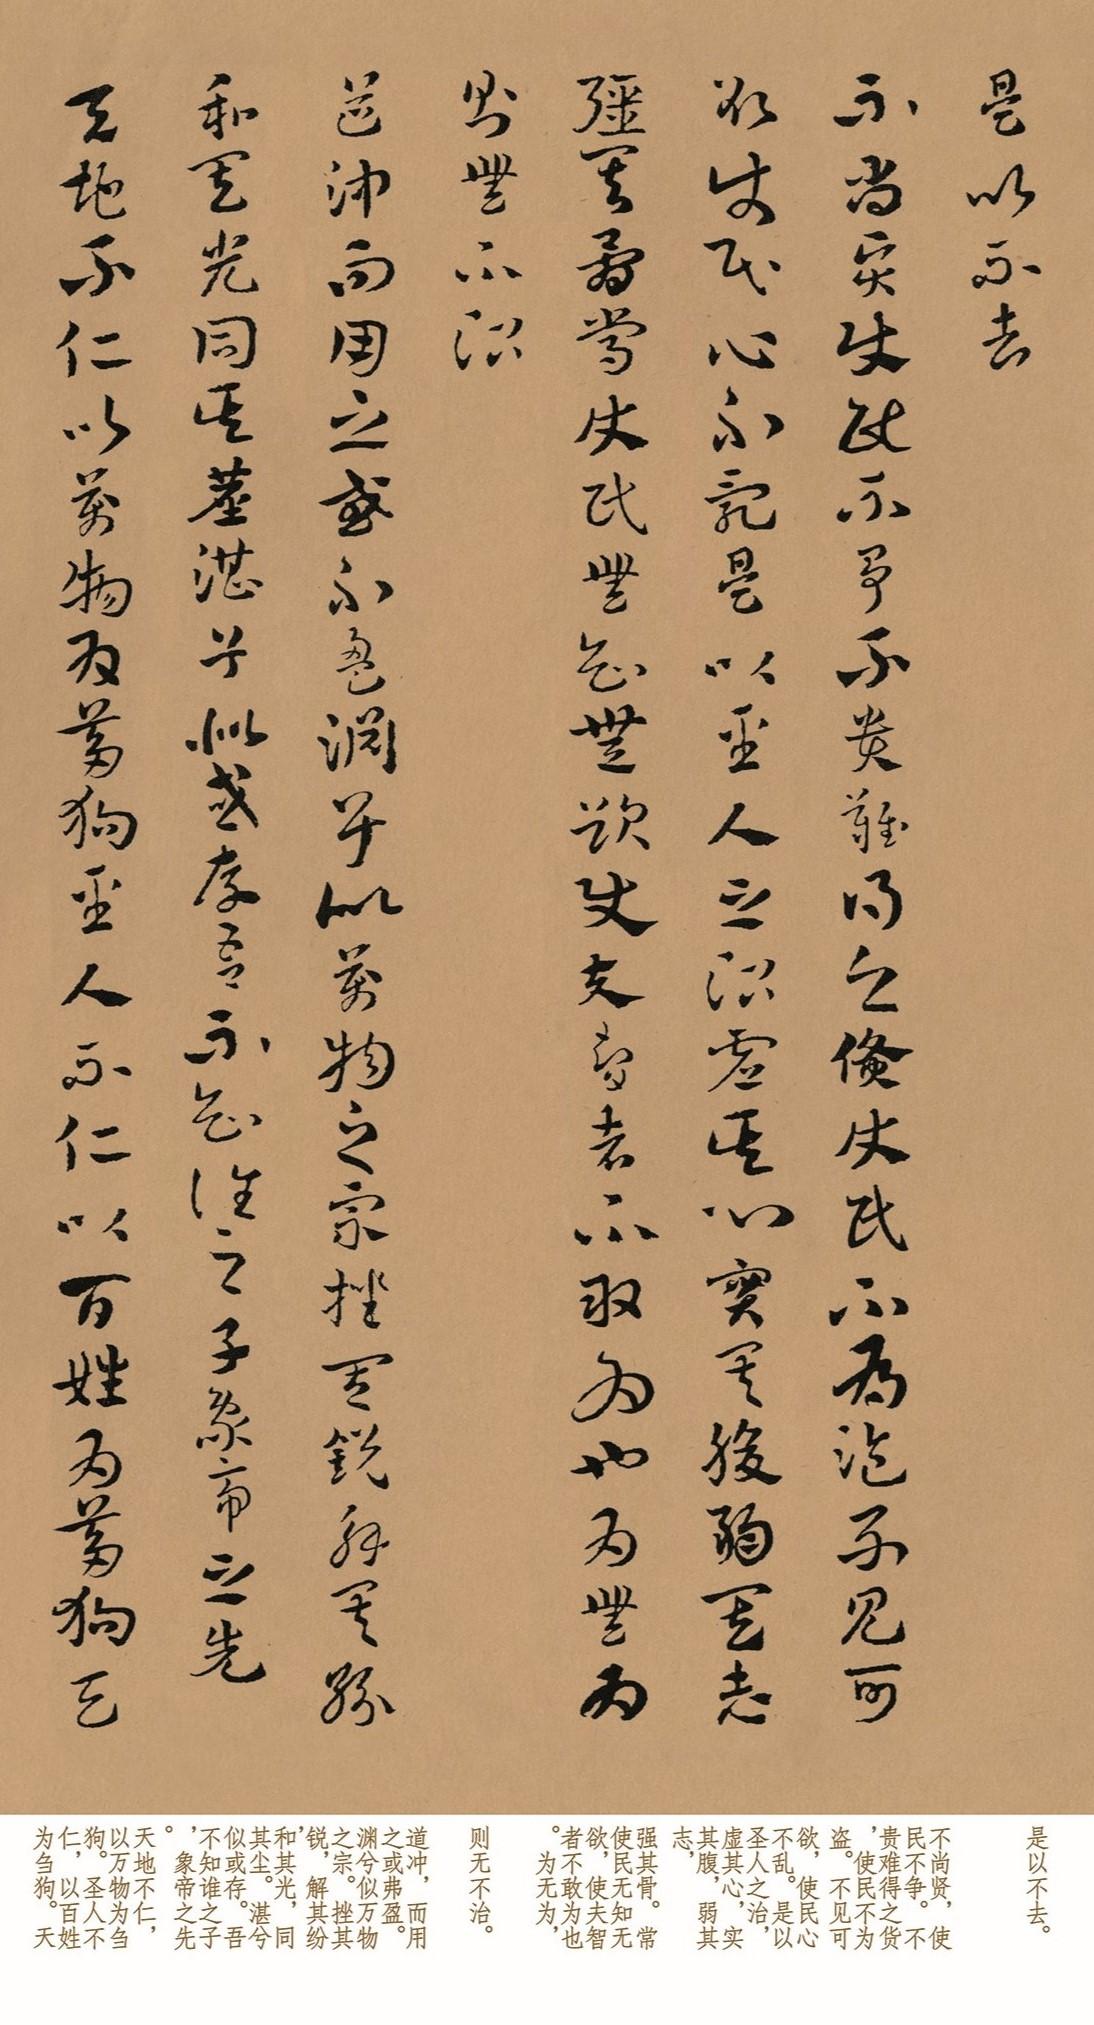 是以不去
不尚賢使民不爭不貴難得之貨使民不為盜不見可
欲使民心不亂是以聖人之治虛其心實其腹弱其志
彊其骨常使民無知無欲使夫智者不敢為也為無為
則無不治
道沖而用之或不盈淵乎似萬物之宗挫其銳解其紛
和其光同其塵湛乎似或存吾不知誰之子象帝之先
天地不仁以萬物為芻狗聖人不仁以百姓為芻狗天
是以不去。
不尚贤，使
民不争。不
贵难得之货
，使民不为
盗。不见可
欲，使民心
不乱。是以
圣人之治，
虚其心，实
其腹，弱其
志，
强其骨。常
使民无知无
欲，使夫智
者不敢为也
。为无为，
则无不治。
道冲，而用
之或弗盈。
渊兮似万物
之宗。挫其
锐，解其纷
，
和其光，同
其尘。湛兮
似或存。吾
不知谁之子
，象帝之先
。
天地不仁，
以万物为刍
狗。圣人不
仁，以百姓
为刍狗。天